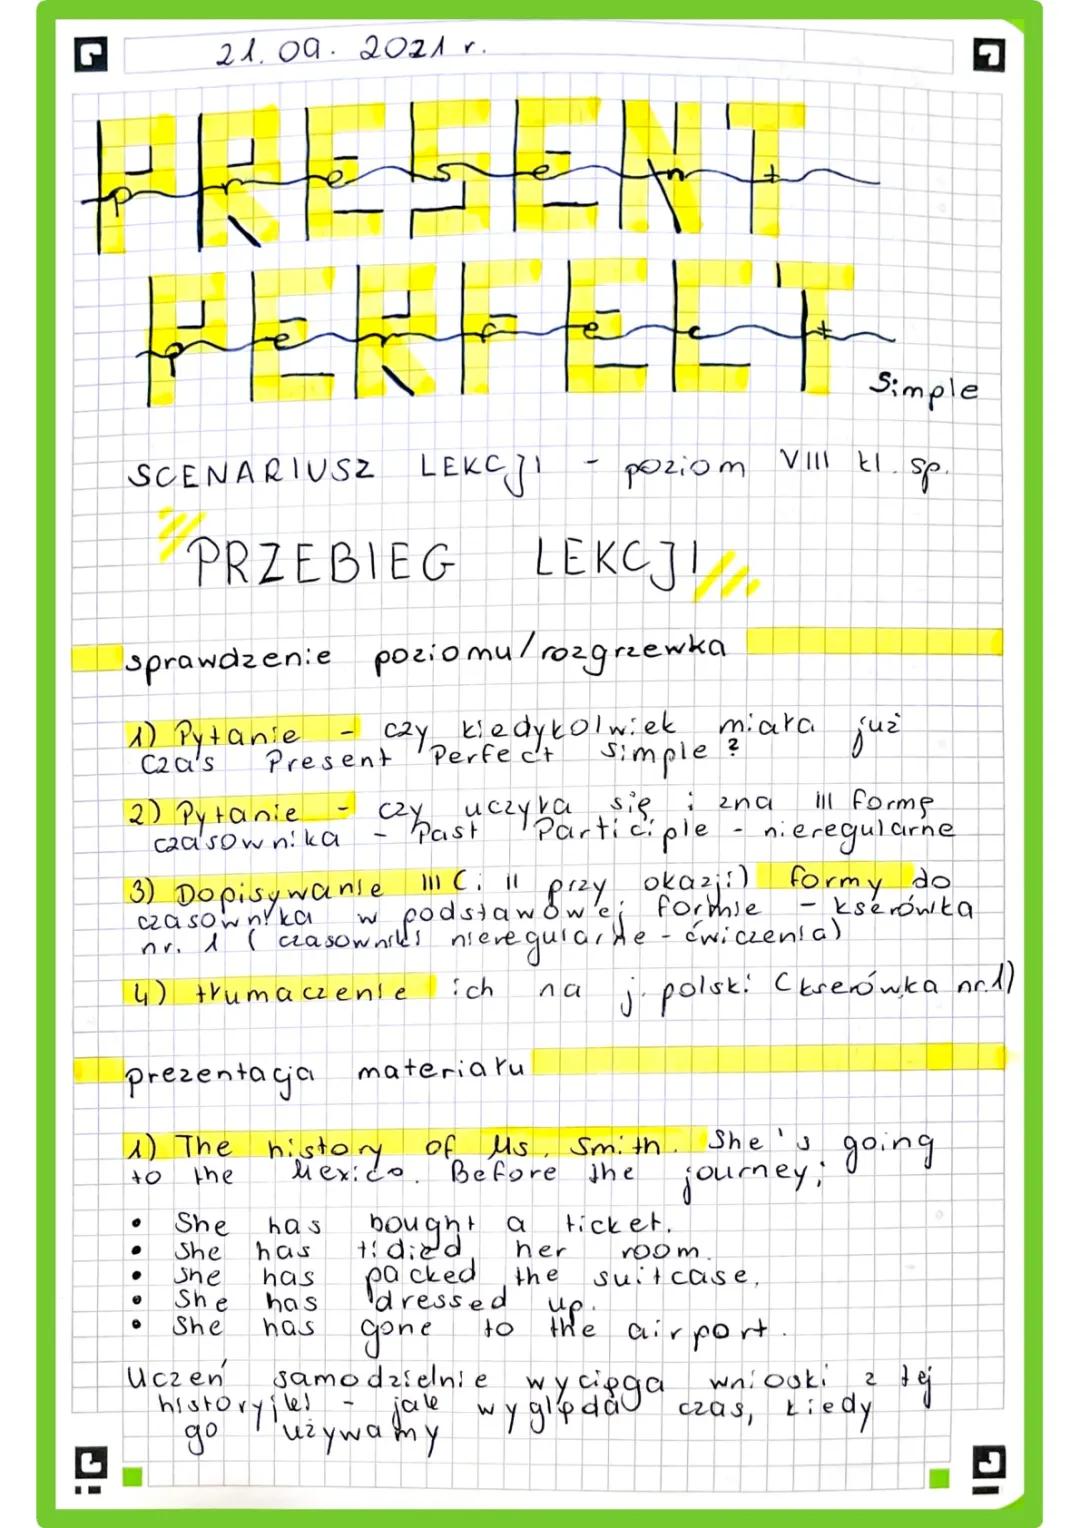 21.09.2021 r.
PRESENT
present
PERFECT
perfect
Simple
SCENARIUSZ LEKCJI - poziom VIII kl. sp.
PRZEBIEG LEKCJI
sprawdzenie poziomu/rozgrzewka
1) Pytanie - czy kiedykolwiek miała już
czas Present Perfect Simple?
2) Pytanie - czy uczyła się i zna III formę
czasownika - Past Participle - nieregularne
3) Dopisywanie III (i II przy okazji) formy do
czasownika w podstawowej formie - kserówka
nr. 1 (czasowniki nieregularne - ćwiczenia)
4) tłumaczenie ich na j. polski (kserówka nr.1)
prezentacja materiału
1) The history of Ms. Smith. She's going
to the Mexico. Before the journey:
• She has bought a ticket.
• She has tidied her room.
• She has packed the suitcase.
• She has dressed up.
• She has gone to the airport.
Uczeń samodzielnie wyciąga wnioski z tej
historyjki - jak wygląda czas, kiedy
go używamy